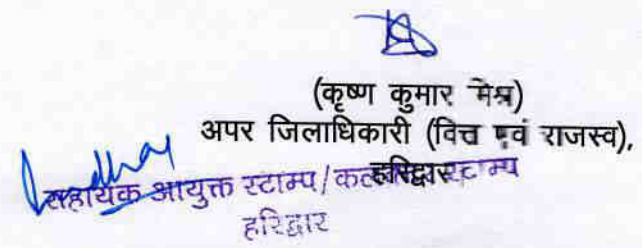 (कृष्ण कुमार मिश्र)
अपर जिलाधिकारी (वित्त एवं राजस्व),
हरिद्वार
सहायक आयुक्त स्टाम्प/कलेक्टर स्टाम्प
हरिद्वार